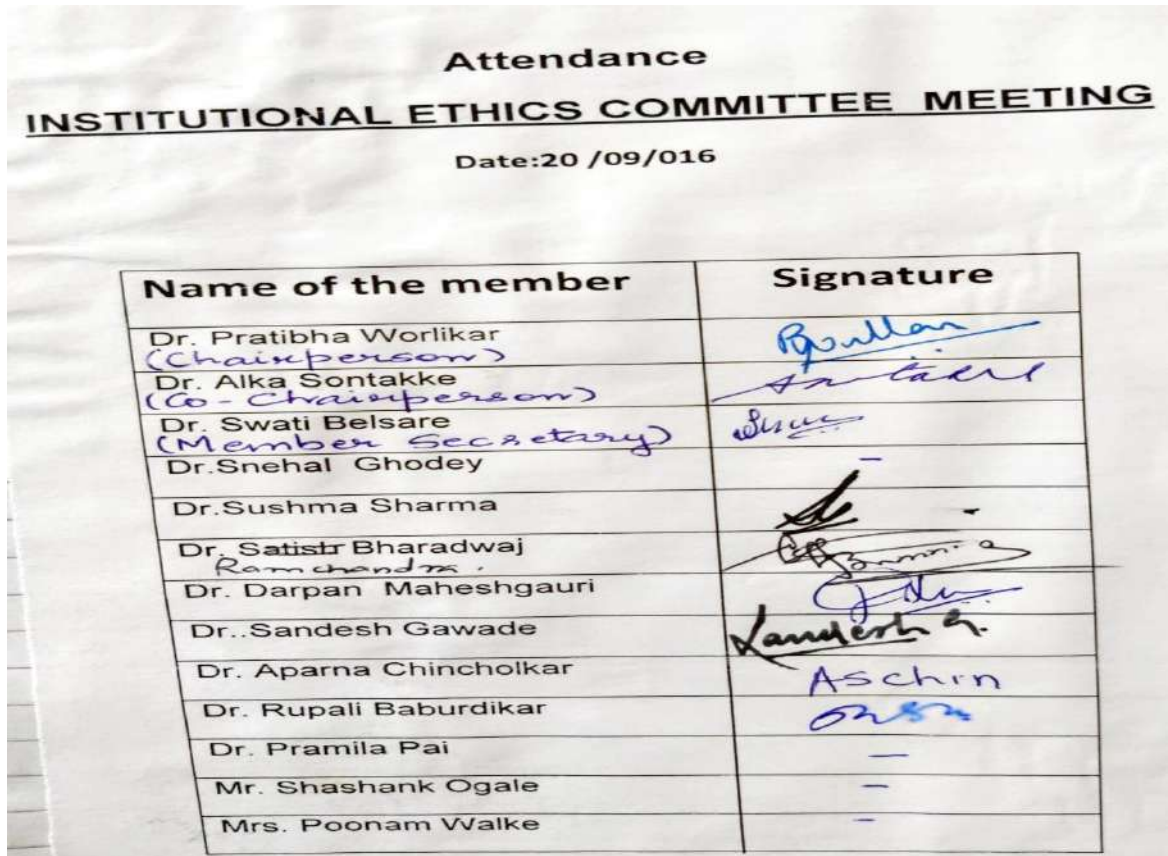 Attendance
INSTITUTIONAL ETHICS COMMITTEE MEETING
Date:20 /09/016
Name of the member Signature
Dr. Pratibha Worlikar
(Chairperson)
Dr. Alka Sontakke
(Co-Chairperson)
Dr. Swati Belsare
(Member Secretary)
Dr.Snehal Ghodey –
Dr.Sushma Sharma
Dr. Satish Bharadwaj
Ramchandra.
Dr. Darpan Maheshgauri
Dr..Sandesh Gawade Sandesh G.
Dr. Aparna Chincholkar Aschin
Dr. Rupali Baburdikar
Dr. Pramila Pai –
Mr. Shashank Ogale –
Mrs. Poonam Walke -